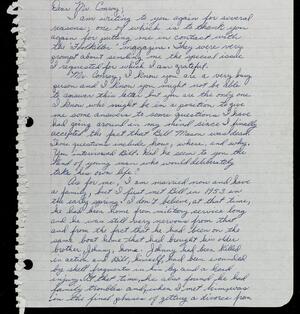 Dear Mr. Conroy,
I am writing to you again for several
reasons; one of which is to thank you
again for putting me in contact with
the magazine. They were very
prompt about sending me the special issue
I requested for which I am grateful.
Mr. Conroy, I know you are a very busy
person and I know you might not be able
to answer this letter but you are the only one
I know who might be in a position to give
me some answers to some questions I have
had going around in my mind since I finally
accepted the fact that Bill was dead.
Some questions include, how, where, and why.
You interviewed didn't he seem to you the
kind of young man who would deliberately
take his own life?
As for me, I am married now and have
a family, but I first met Bill in 1953 in
the early spring. I don't believe, at that time,
he had been home from military service long
and he was still very nervous from that
and from the fact that he had been on the
same boat home that had brought his older
brother, Johnny, home. Johnny had been killed
in action and Bill, himself, had been wounded
by shell fragments in his leg and a head
injury. At that time, he also found he had
family troubles and, when I met him, was
in the final phases of getting a divorce from